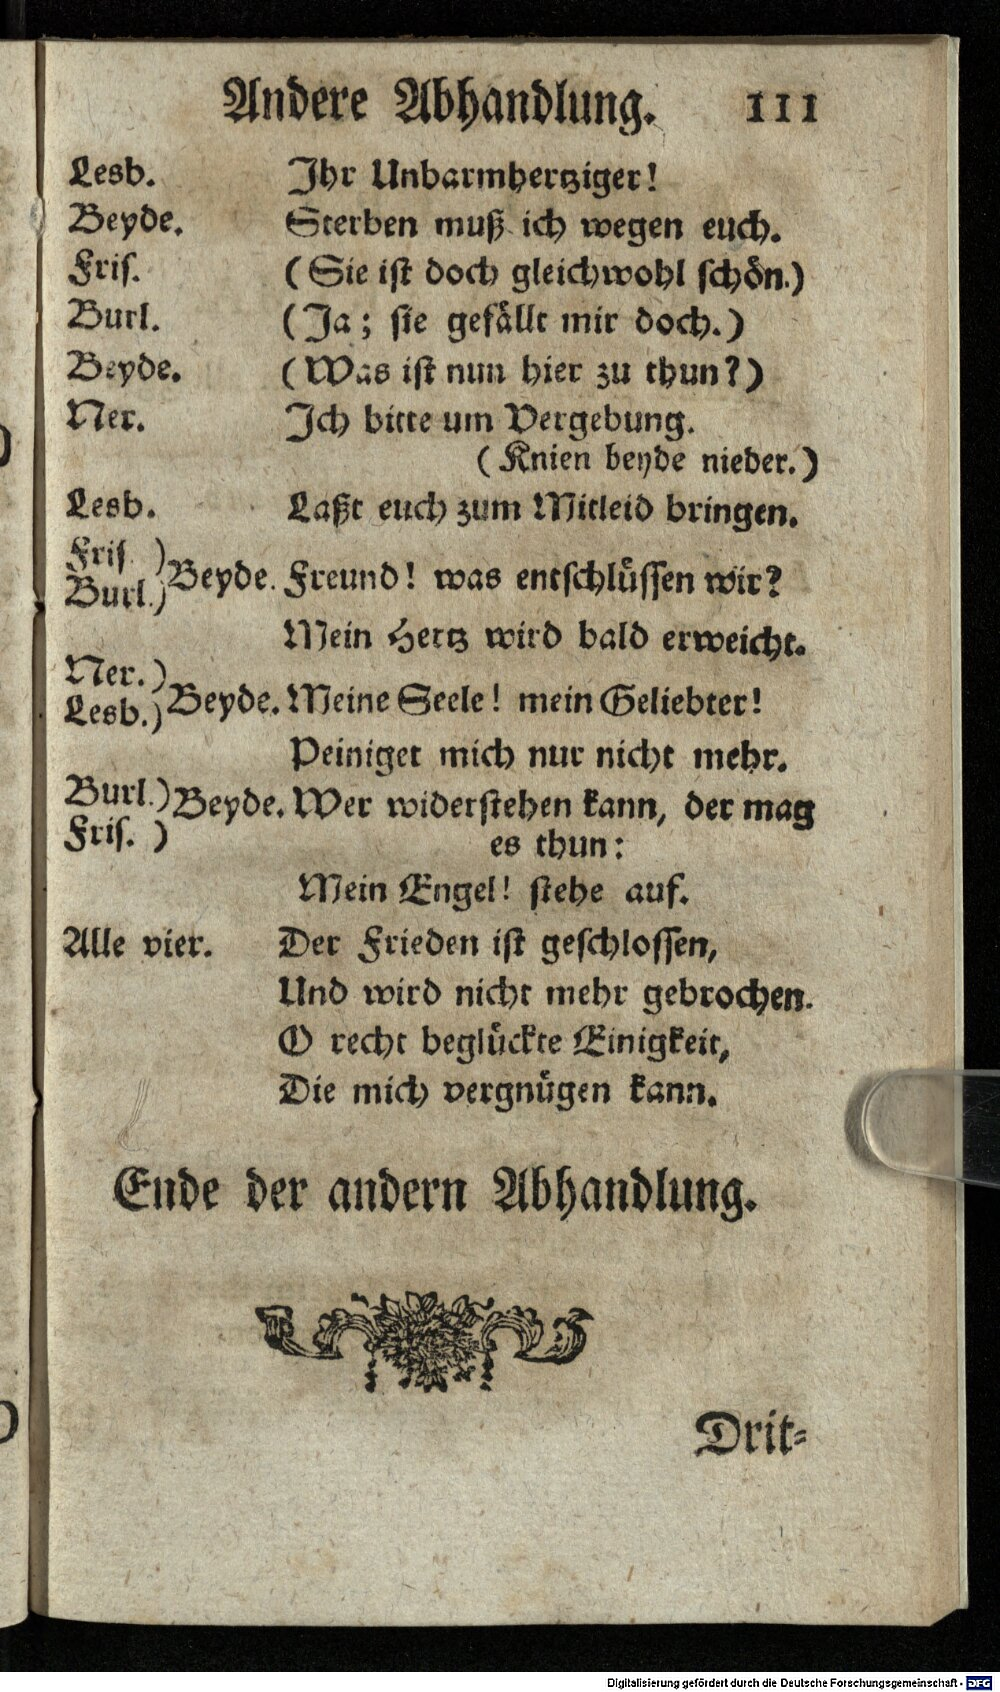 Andere Abhandlung. 111
Lesb. Ihr Unbarmhertziger!
Beyde. Sterben muß ich wegen euch.
Fris. (Sie ist doch gleichwohl schön.)
Burl. (Ja; sie gefällt mir doch.)
Beyde. (Was ist nun hier zu thun?)
Ner. Ich bitte um Vergebung.
(Knien beyde nieder.)
Lesb. Laßt euch zum Mitleid bringen.
Fris. )
Burl.) Beyde. Freund! was entschlüssen wir?
Mein Hertz wird bald erweicht.
Ner.)
Lesb.) Beyde. Meine Seele! mein Geliebter!
Peiniget mich nur nicht mehr.
Burl.) Beyde. Wer widerstehen kann, der mag
Fris. ) es thun:
Mein Engel! stehe auf.
Alle vier. Der Frieden ist geschlossen,
Und wird nicht mehr gebrochen.
O recht beglückte Einigkeit,
Die mich vergnügen kann.
Ende der andern Abhandlung.
Drit-
Digitalisierung gefördert durch die Deutsche Forschungsgemeinschaft - DFG